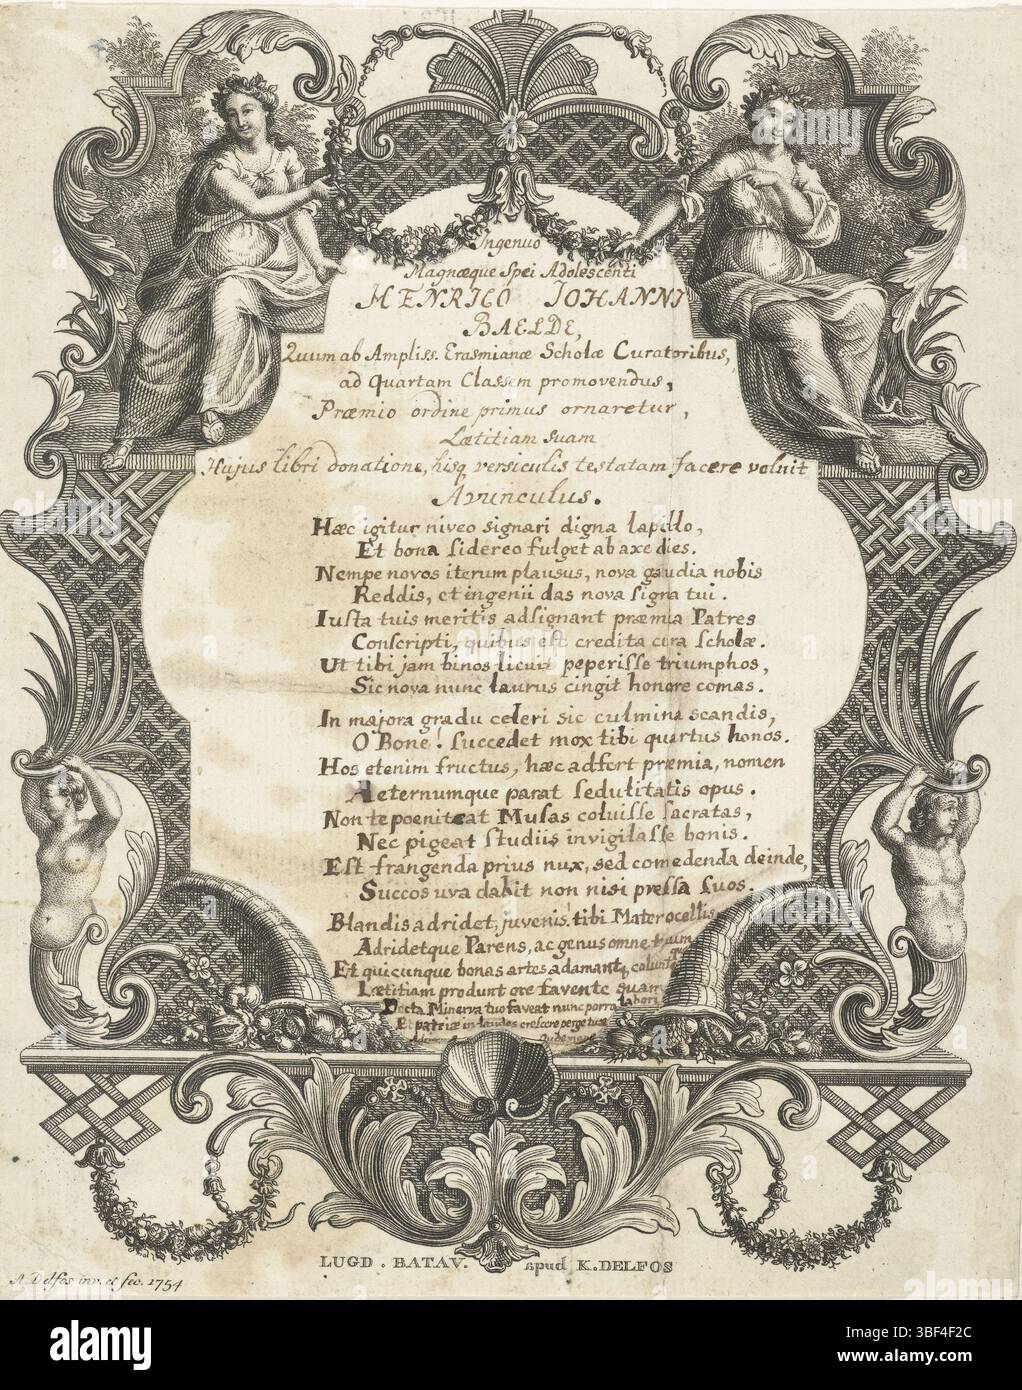 Ingenuo
Magnæque Spei Adolescenti
HENRICO IOHANNI
BAELDE,
Quum ab Ampliss. Erasmianæ Scholæ Curatoribus,
ad Quartam Classem promovendus,
Præmio ordine primus ornaretur,
Lætitiam suam
Hujus libri donatione, hisq versiculis testatam facere voluit
Avunculus.
Hæc igitur niveo signari digna lapillo,
Et bona sidereo fulget ab axe dies.
Nempe novos iterum plausus, nova gaudia nobis
Reddis, et ingenii das nova signa tui.
Iusta tuis meritis adsignant præmia Patres
Conscripti, quibus est credita cura Scholæ.
Ut tibi jam binos licuit peperisse triumphos,
Sic nova nunc laurus cingit honore comas.
In majora gradu celeri sic culmina scandis,
O Bone! succedet mox tibi quartus honos.
Hos etenim fructus, hæc adfert præmia, nomen
Aeternumque parat sedulitatis opus.
Non te poeniteat Musas coluisse sacratas,
Nec pigeat studiis invigilasse bonis.
Est frangenda prius nux, sed comedenda deinde,
Succos uva dabit non nisi pressa suos.
Blandis adridet, juvenis! tibi Mater ocellis,
Adridetque Parens, ac genus omne tuum
Et quicunque bonas artes adamantq, coluntq
Lætitiam produnt ore favente suam
Docta Minerva tuo faveat nunc porro labori
Et patriæ in laudes crescere perge tuæ
LUGD. BATAV. apud K. DELFOS
A. Delfos inv. et fec. 1754
alamy
Image ID: 3BF4F2C
www.alamy.com